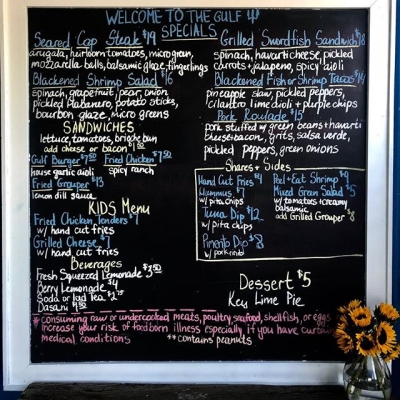 WELCOME TO THE GULF
SPECIALS
Seared Cap Steak $19
arugala, heirloom tomatoes, microgreen,
mozzarella balls, balsamic glaze, fingerlings
Blackened Shrimp Salad $16
spinach, grapefruit, pear, onion
pickled Habanero, potato sticks,
bourbon glaze, micro greens
SANDWICHES
lettuce, tomatoes, brioche bun
add cheese or bacon $1.50
Gulf Burger $7.50
house garlic aioli
Fried Chicken $7.50
spicy ranch
Fried Grouper $13
lemon dill sauce
KIDS Menu
Fried Chicken Tenders $7
w/ hand cut fries
Grilled Cheese $7
w/ hand cut fries
Beverages
Fresh Squeezed Lemonade $3.50
Berry Lemonade $4
Soda or Iced Tea $2.75
Dasani
Grilled Swordfish Sandwich
spinach, havarti cheese, pickled
carrots + jalapeno, spicy aioli
Blackened Fish or Shrimp Tacos $14
pineapple slaw, pickled peppers,
cilantro lime aioli + purple chips
Pork Roulade $15
pork stuffed w/ green beans + havarti
cheese + bacon, grits, salsa verde,
pickled peppers, green onions
Shares + Sides
Hand Cut Fries $4
Hummus $7
w/ pita chips
Tuna Dip $12
w/ pita chips
Pimento Dip $8
w/ pork rinds
Peel + Eat Shrimp $9
Mixed Green Salad $5
w/ tomatoes + creamy
balsamic
add Grilled Grouper $8
Dessert $5
Key Lime Pie
*consuming raw or undercooked meats, poultry, seafood, shellfish, or eggs
increase your risk of foodborn illness especially if you have curtain
medical conditions
**contains peanuts